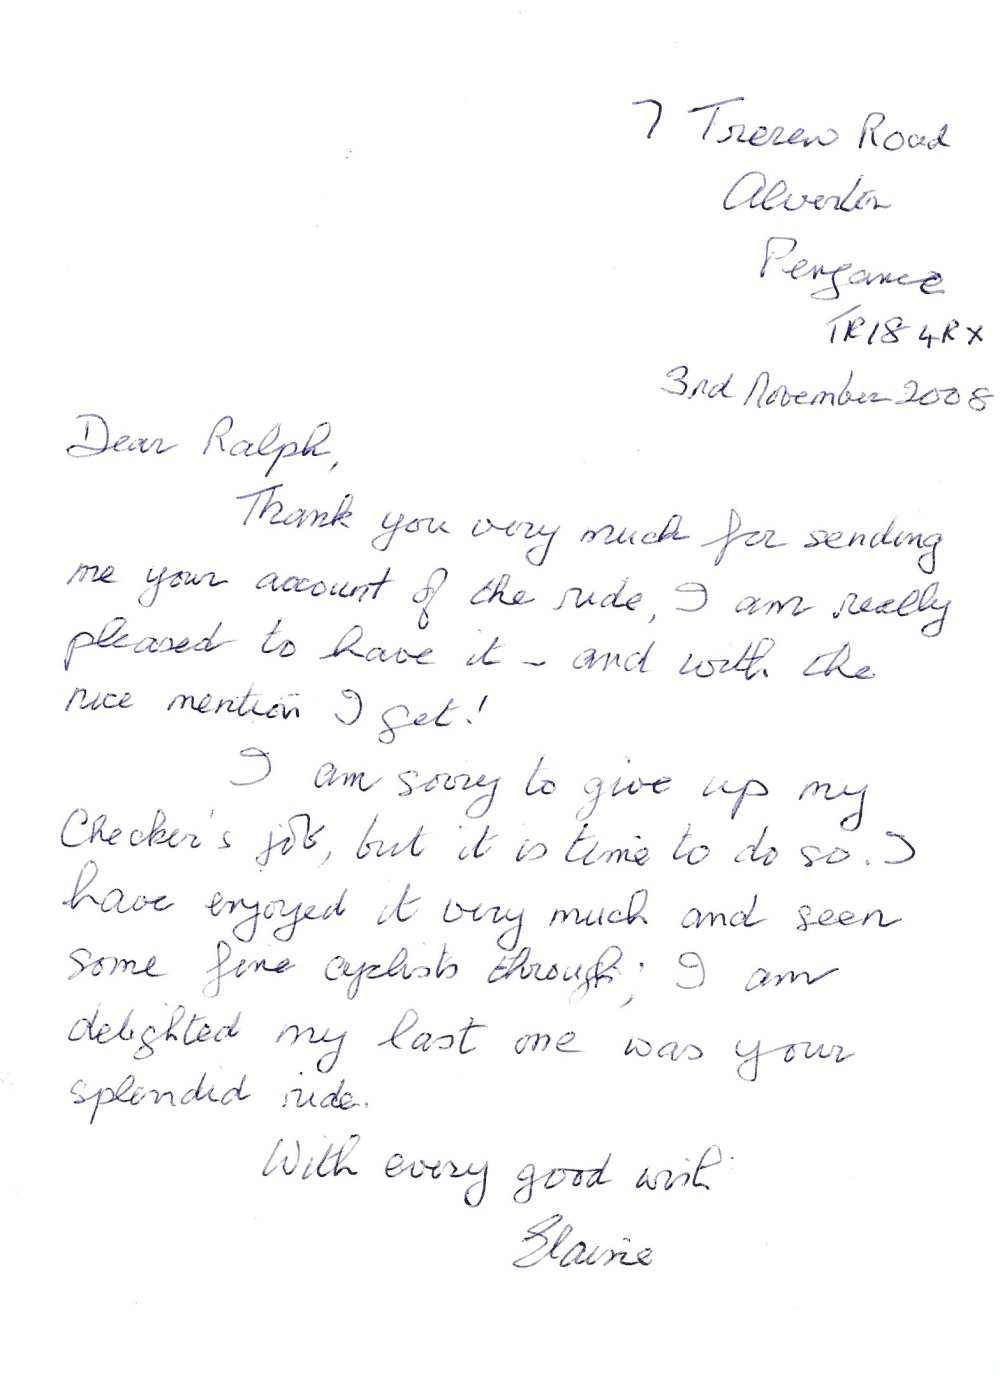 7 Trerew Road
Alverton
Penzance
TR18 4RX
3rd November 2008
Dear Ralph,
Thank you very much for sending
me your account of the ride, I am really
pleased to have it – and with the
nice mention I get!
I am sorry to give up my
Checker's job, but it is time to do so. I
have enjoyed it very much and seen
some fine cyclists through; I am
delighted my last one was your
splendid ride.
With every good wish
Elaine